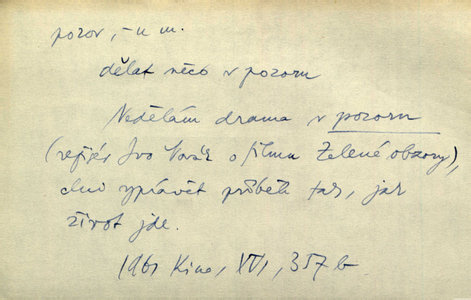 pozor, -u m.
dělat něco v pozoru
Nedělám drama v pozoru
(režisér Ivo Novák o filmu Zelené obzory),
chci vyprávět příběh tak, jak
život jde.
1961 Kino, XVI, 357 b